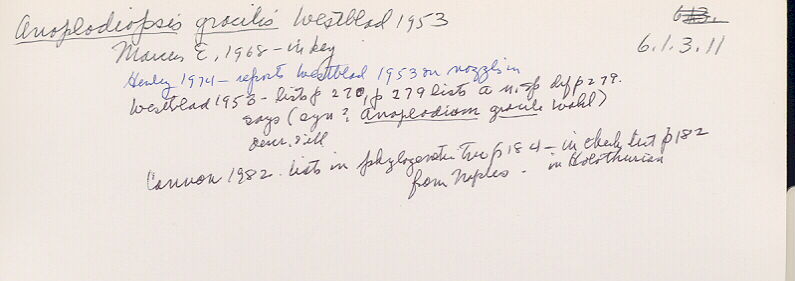 Anoplodiopsis gracilis Westblad 1953
6.1.3.11
Marcus E, 1968 - in key
Henley 1974 - reports Westblad 1953 on nozzles in
Westblad 1953 - lists p 270, p 279 lists a n. sp def p 279.
says (syn? Anoplodium gracile Wahl)
Descr. & ill
Cannon 1982. lists in phylogenetic tree p 184 - in check list p 182
from Naples - in Holothurian